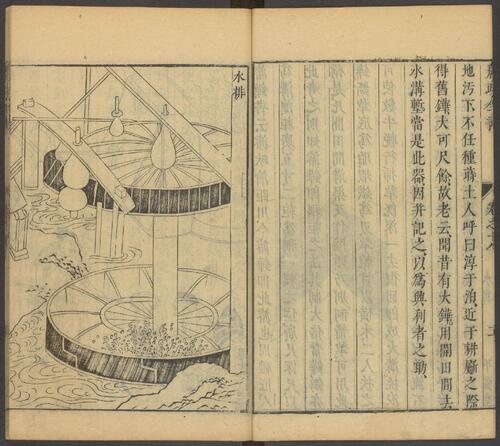 農政全書
卷之十八
地汚下不任種蒔土人呼曰淳于泊近于耕斸之際
得舊鏵大可尺餘故老云聞昔有大鏵用開田間去
水溝塹當是此器因并記之以爲興利者之助
水排